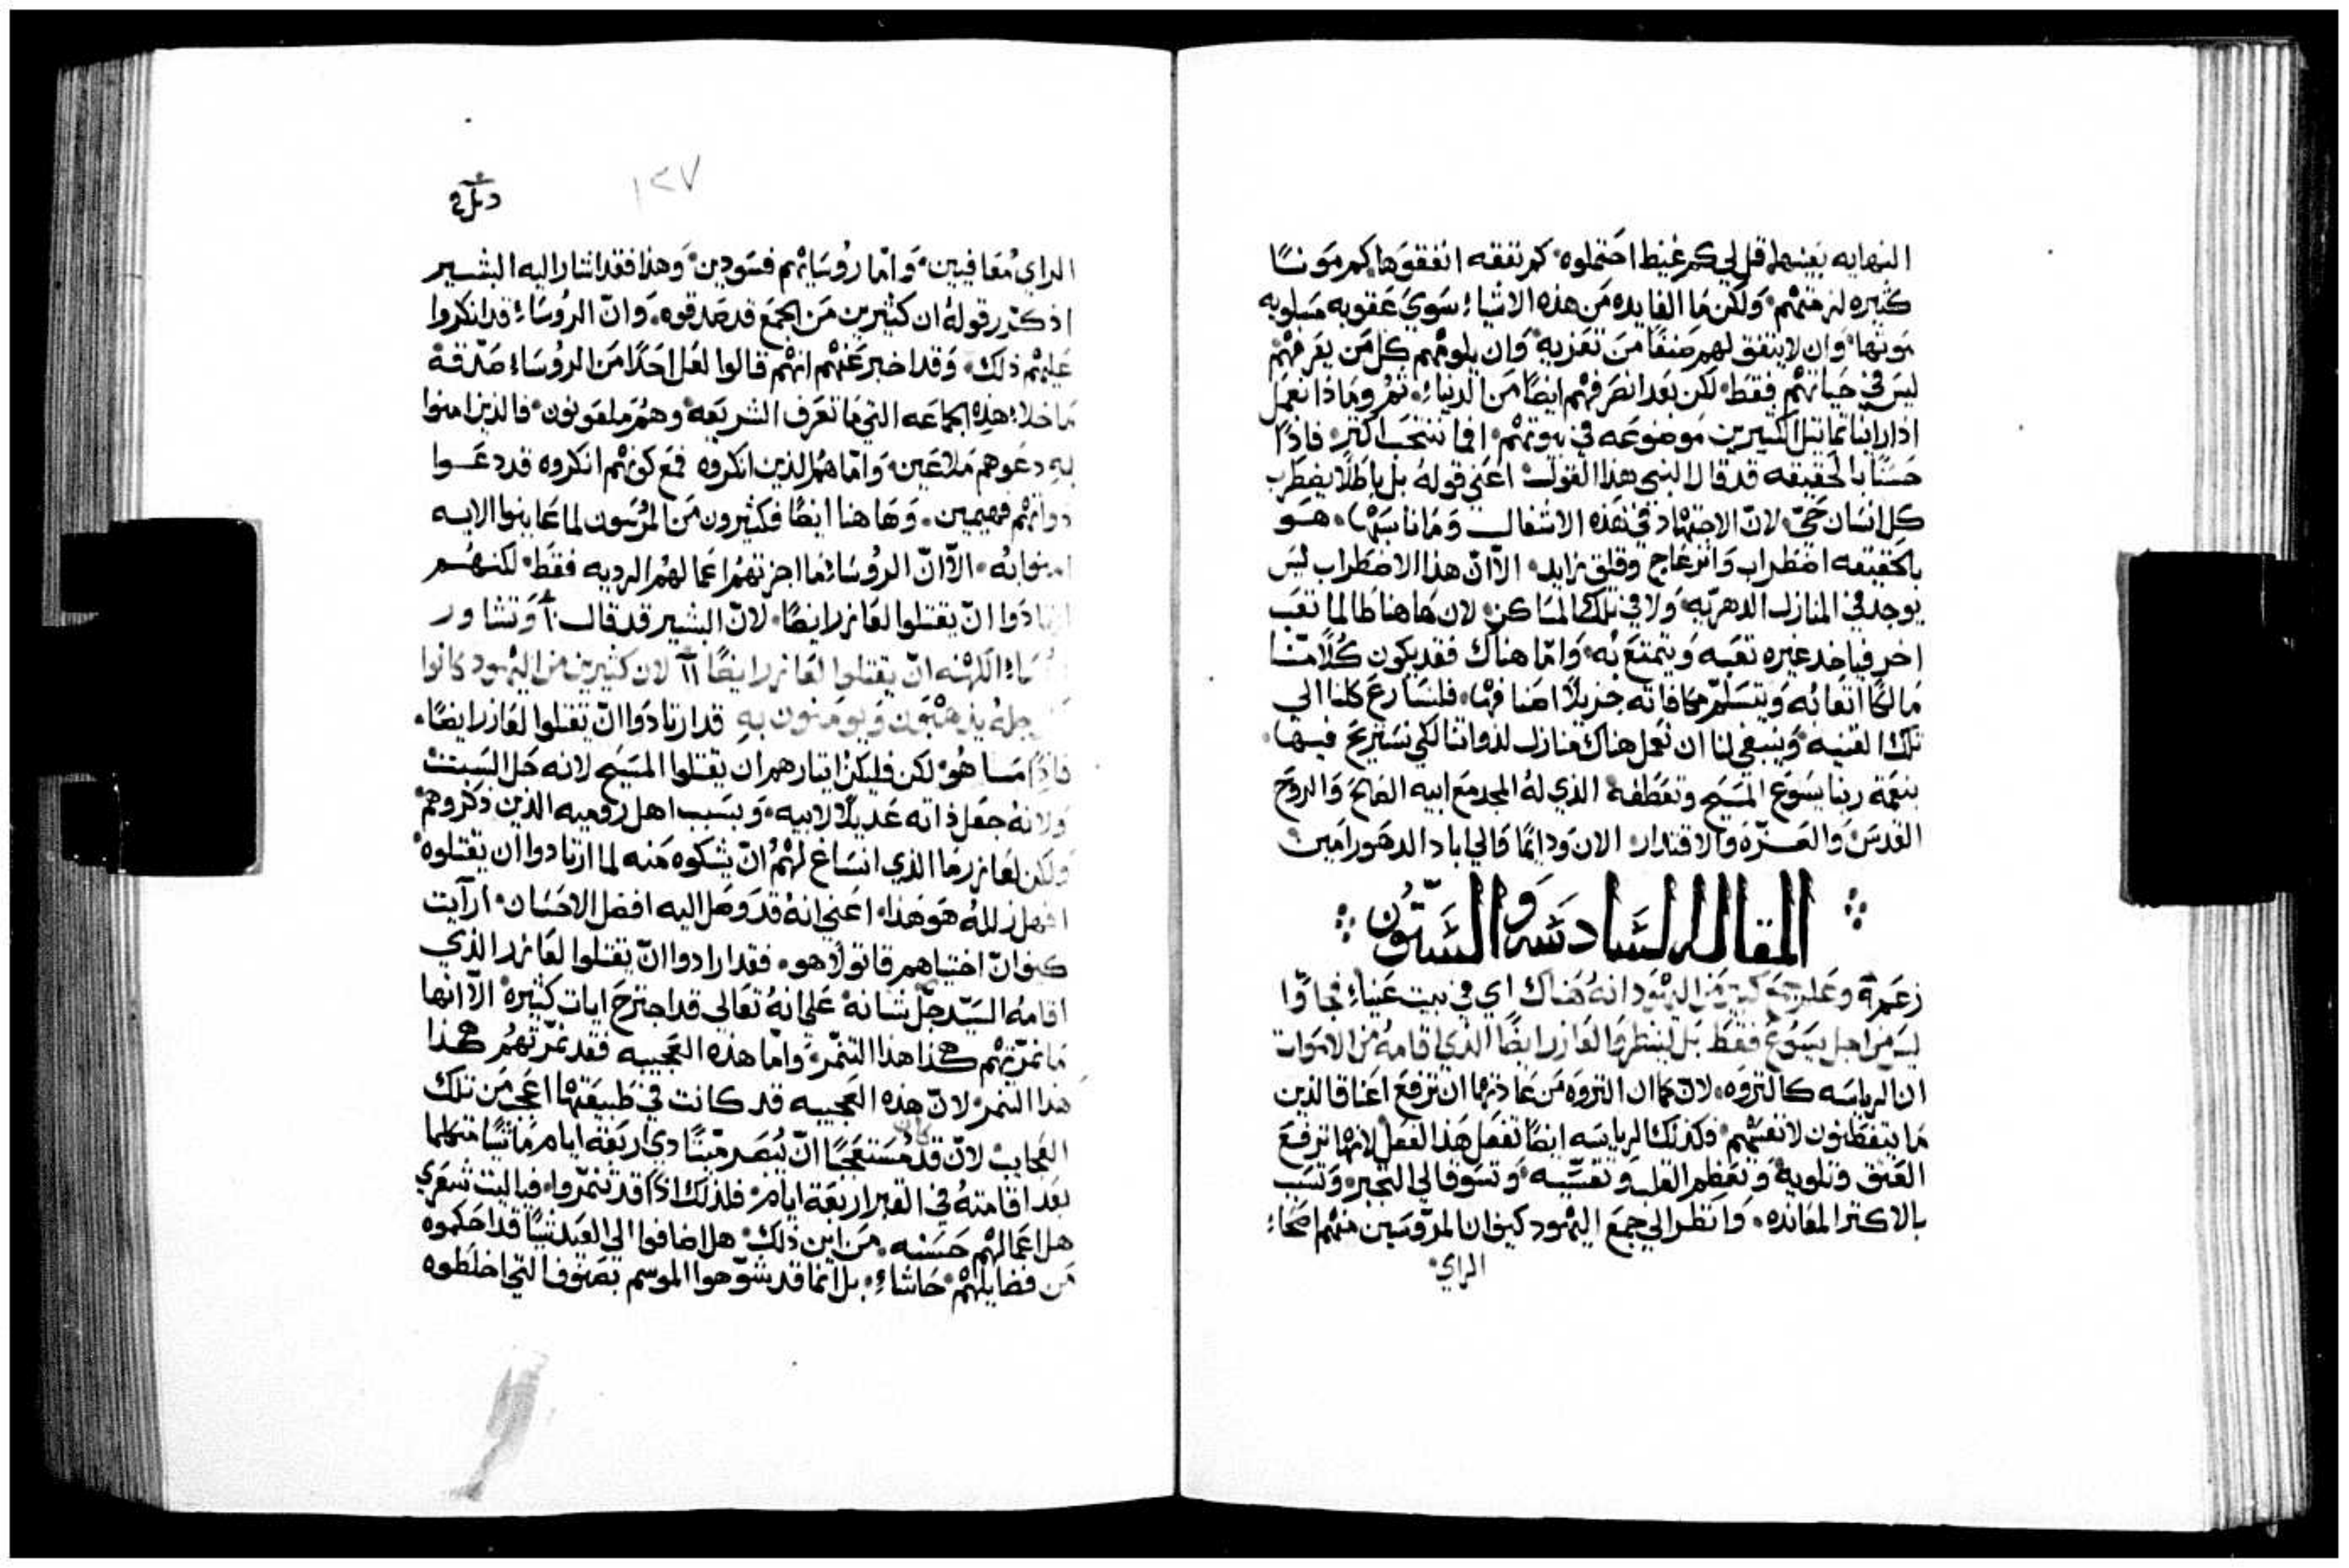 النهايه بعينها قل لي كم غيظ احتملوه كم نفقه انفقوها كم موننًا
كثيره لزمتهم ولكن ما الفايده من هذه الاشياء سوي عقوبه مسلوبه
موتها وان لا يتفق لهم صنفًا من تعزيه وان يلومهم كل من يعرفهم
ليس في حياتهم فقط لكن بعد انصرفهم ايضًا من الدنياء ثم وماذا نعمل
اذا راينا تماثيل الكثيرين موضوعه في بيوتهم افما ننتحب اكثر فاذًا
حسنًا بالحقيقه قد قال النبي هذا القول اعني قوله بل باطلًا يضطرب
كل انسان حيّ لان الاجتهاد في هذه الاشغال وما ناسبها هو
بالحقيقه اضطراب وانزعاج وقلق زايد الّا انّ هذا الاضطراب ليس
يوجد في المنازل الدهريّه ولا في تلك المساكن لان هاهنا طالما تعب
اخر فياخد غيره تعبه ويتمتع به وامّا هناك فقد يكون كلًا منّا
مالكًا اتعابه ويتسلّم مكافاته جزيلًا اضعافها فلنسارع كلنا الي
تلك القنيه وينبغي لنا ان نعمل هناك منازل لذواتنا لكي نستريح فيها
بنعمة ربنا يسوع المسيح وتعطفه الذي له المجد مع ابيه الصالح والروح
القدس والعزّه والاقتدار الان ودايمًا والي اباد الدهور امين
المقاله السادسه والستون
زعم وعلم جمع كبير من اليهود انه هناك اي في بيت عنيا فجاوّا
ليس من اجل يسوع فقط بل لينظروا لعازر ايضًا الذي اقامه من الاموات
ان الرياسه كالثروه لان كما ان الثروه من عادتها ان ترفع اعناق الذين
ما يتفطنون لانفسهم وكذلك الرياسه ايضًا تفعل هذا الفعل لانها ترفع
العنق وتلويه وتعظم القلب وتقسّيه وتسوق الي التجبر وتسبب
بالاكثر المعانده وانظر الي جمع اليهود كيف ان المرؤسين منهم اصحاء
الراي
١٢٧
الراي معافيين وامّا روسايهم فسودين وهذا فقد اشار اليه البشير
اذ كرّر قوله ان كثيرين من الجمع قد صدقوه وانّ الروساء قد انكروا
عليهم ذلك وقد اخبر عنهم انهم قالوا لعل احدًا من الروساء صدّقه
ما خلا هذه الجماعه التي ما تعرف الشريعه وهم ملعونون فالذين امنوا
به دعوهم ملاعين وامّا هم الذين انكروه فمع كونهم انكروه قد دعوا
ذواتهم فهيمين وهاهنا ايضًا فكثيرون من المرؤسون لما عاينوا الايه
امنوا به الّا انّ الروساء ما اجزتهم اعمالهم الرديه فقط لكنهم
ارتادوا انّ يقتلوا لعازر ايضًا لانّ البشير قد قال وتشاور
روساء الكهنه انّ يقتلوا لعازر ايضًا لان كثيرين من اليهود كانوا
من اجله يذهبون ويومنون به قد ارتادوا انّ تقتلوا لعازر ايضًا
فاذًا مسا هو لكن فليكن ايثارهم ان يقتلوا المسيح لانه حل السبت
ولانه جعل ذاته عديلًا لابيه وبسبب اهل روميه الذين ذكروهم
ولكن لعازر ما الذي انساغ لهم انّ يشكوه منه لما ارتادوا ان يقتلوه
افهل زلله هو هذا اعني انه قد وصل اليه افضل الاحسان ارايت
كيف انّ اختياهم قاتولًا هو فقد ارادوا انّ يقتلوا لعازر الذي
اقامه السيّد جلّ شانه علي انه تعالي قد اجترح ايات كثيره الّا انها
ما نمرّتهم هكذا هذا التنمر وامّا هذه العجيبه فقد نمّرتهم هكذا
هذا التنمر لانّ هذه العجيبه قد كانت في طبيعتها اعجب من تلك
العجايب لانّ قد كان مستعجبًا انّ يُبصر ميتًا ذي اربعة ايام ماشيًا متكلما
بعد اقامته في القبر اربعة ايام فلذلك اذًا قد تنمّروا فياليت شعري
هل اعمالهم حسنه من اين ذلك هل اضافوا الي العيد شيًا قد احكموه
من فضايلهم حاشاء بل انما قد شوّهوا الموسم بصنوف التي اخلطوه